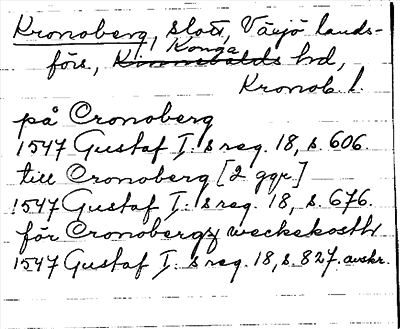 Kronoberg, slott, Växjö lands-
förs., Konga
Kinnevalds hd,
Kronob. l.
på Cronoberg
1547 Gustaf I:s reg. 18, s. 606.
till Cronoberg [2 ggr]
1547 Gustaf I:s reg. 18, s. 676.
för Cronobergz weckekosth
1547 Gustaf I:s reg. 18, s. 827. avskr.